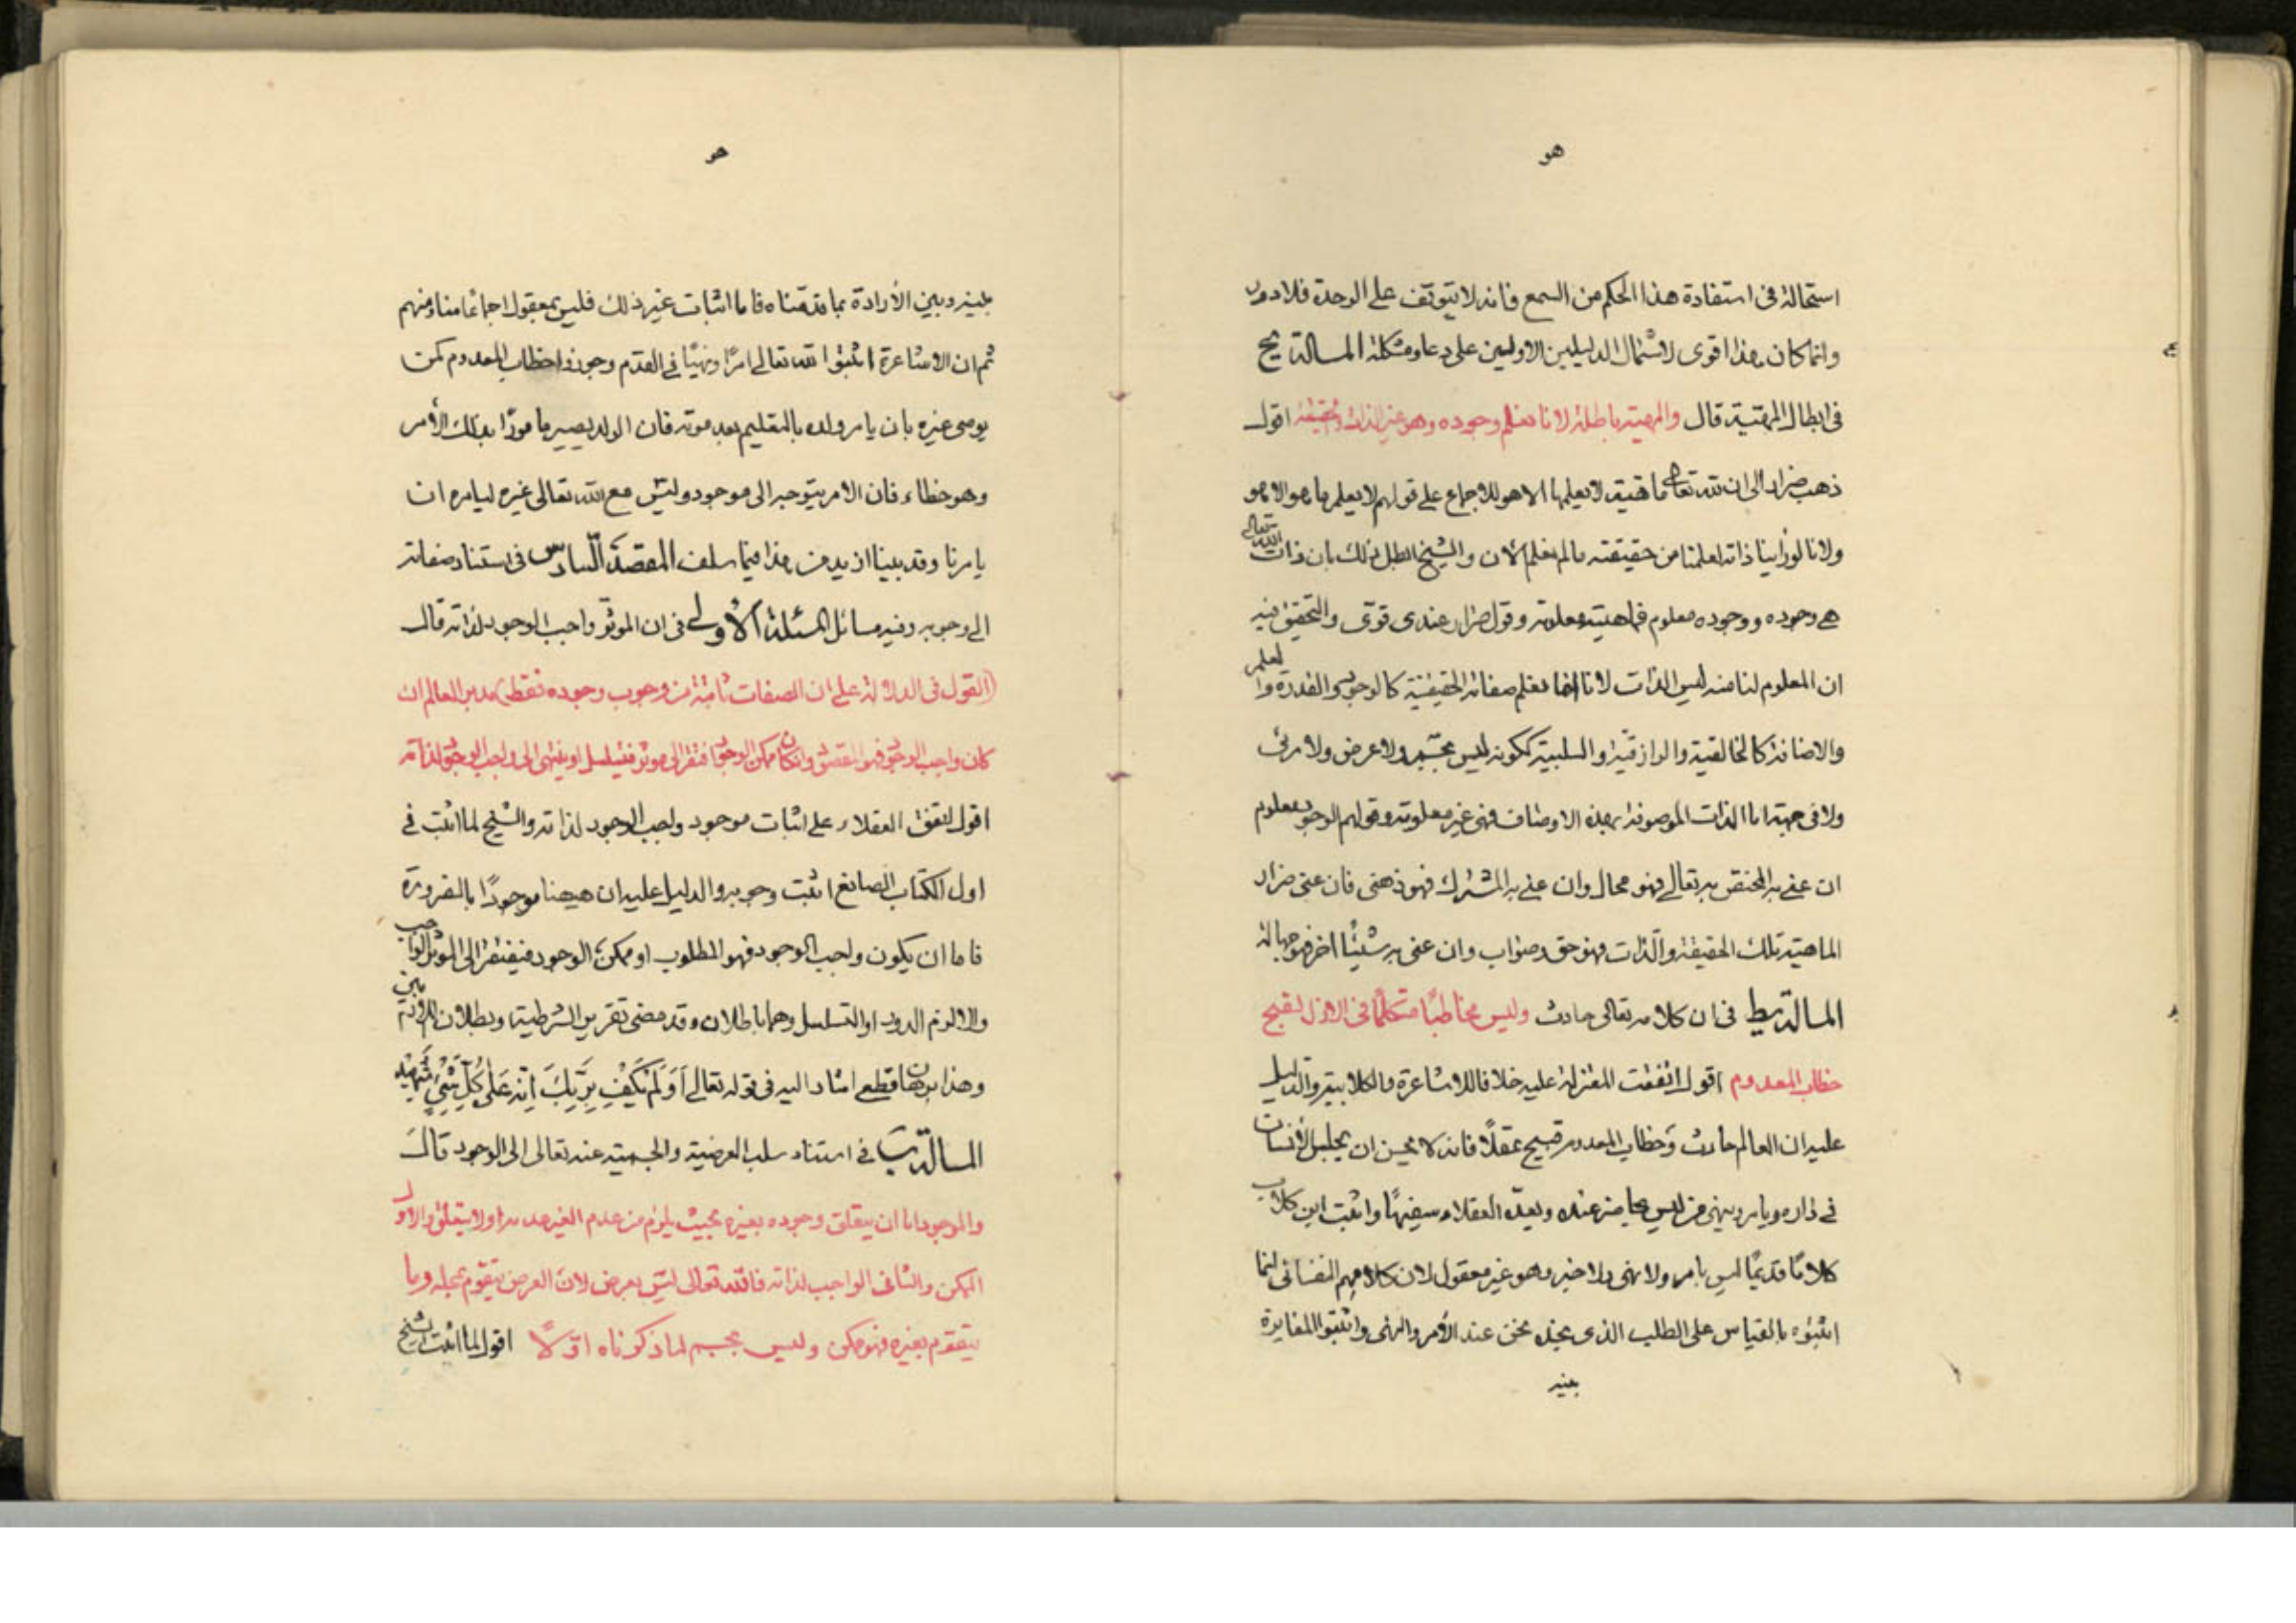 هو
استحالة فى استفادة هذا الحكم من السمع فانه لا يتوقف على الوحدة فلا دور
وانما كان هذا اقوى لاشتمال الدليلين الاولين على دعاو مشكلة المسالة يح
فى ابطال المهية قال والمهية باطلة لانا نعلم وجوده وهو عين الذات اقول
ذهب ضرار الى ان لله تعالى ماهية لا يعلمها الا هو للاجماع على قولهم لا يعلم ما هو الا هو
ولانا لو راينا ذاته لعلمنا من حقيقته ما لم نعلم الان والشيخ ابطل ذلك بان ذات الله تعالى
هى وجوده ووجوده معلوم فماهيته معلومة وقول ضرار عندى قوى والتحقيق فيه
ان المعلوم لنا منه ليس الذات لانا انما نعلم صفاته الحقيقية كالوجود والقدرة والعلم
والاضافة كالخالقية والرازقية والسلبية ككونه ليس بمتحيز ولا عرض ولا مرئى
ولا فى جهة اما الذات الموصوفة بهذه الاوصاف فهى غير معلومة وقولهم الوجود معلوم
ان عنى به المختص به تعالى فهو محال وان عنى به المشترك فهو ذهنى فان عنى ضرار
الماهية تلك الحقيقة والذات فهو حق وصواب وان عنى به شيئا اخر فهو جهالة
المسالة يط فى ان كلامه تعالى حادث وليس مخاطبا متكلما فى الازل لقبح
خطاب المعدوم اقول اتفقت المعتزلة عليه خلافا للاشاعرة والكلابية والدليل
عليه ان العالم حادث وخطاب المعدوم قبيح عقلا فانه لا يحسن ان يجلس الانسان
فى داره ويامر وينهى من ليس حاضر عنده ويعده العقلاء سفيها واثبت ابن كلاب
كلاما قديما ليس بامر ولا نهى ولا خبر وهو غير معقول لان كلامهم النفسانى انما
اثبتوه بالقياس على الطلب الذى نجده نحن عند الأمر والنهى واثبتوا المغايرة
بينه
هو
بينه وبين الأرادة بما قدمناه فاما اثبات غير ذلك فليس بمعقول اجماعا منا ومنهم
ثم ان الاشاعرة اثبتوا لله تعالى امرا ونهيا فى القدم وجوزوا خطاب المعدوم كمن
يوصى غيره بان يامر ولده بالتعليم بعد موته فان الولد يصير مامورا بذلك الأمر
وهو خطاء فان الامر يتوجه الى موجود وليس مع الله تعالى غيره ليامره ان
يامرنا وقد بينا ازيد من هذا فيما سلف المقصد السادس فى استناد صفاته
الى وجوبه وفيه مسائل المسئلة الأولى فى ان الموثر واجب الوجود لذاته قال
(القول فى الدلالة على ان الصفات ثابتة من وجوب وجوده فقط) مدبر العالم ان
كان واجب الوجود فهو المقصود وان كان ممكن الوجود افتقر الى موثر فتسلسل او ينتهى الى واجب الوجود لذاته
اقول اتفق العقلاء على اثبات موجود واجب الوجود لذاته والشيخ لما اثبت فى
اول الكتاب الصانع اثبت وجوبه والدليل عليه ان هيهنا موجودا بالضرورة
فاما ان يكون واجب الوجود فهو المطلوب او ممكن الوجود فيفتقر الى الموثر الواجب
والا لزم الدور او التسلسل وهما باطلان وقد مضى تقرير الشرطية وبطلان اللازمين
وهذا برهان قطعى اشار اليه فى قوله تعالى أَوَلَمْ يَكْفِ بِرَبِّكَ أَنَّهُ عَلَى كُلِّ شَيْءٍ شَهِيدٌ
المسالة ب فى استناد سلب العرضية والجسمية عنه تعالى الى الوجود قال
والموجود اما ان يتعلق وجوده بغيره بحيث يلزم من عدم الغير عدمه او لا يتعلق والاول
الممكن والثانى الواجب لذاته فالله تعالى ليس بعرض لان العرض يتقوم بمحله وما
يتقوم بغيره فهو ممكن وليس بجسم لما ذكرناه اولا اقول لما اثبت الشيخ